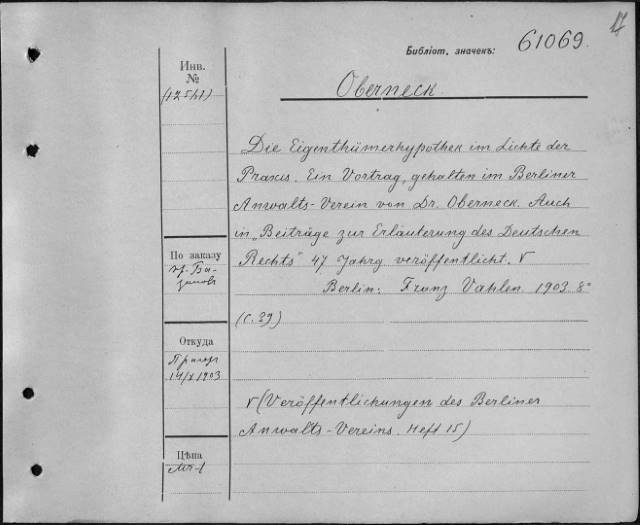 Библіот. значекъ: 61069.
Инв.
№
(12541)
Oberneck
Die Eigenthümerhypothek im Lichte der
Praxis. Ein Vortrag, gehalten im Berliner
Anwalts-Verein von Dr. Oberneck. Auch
in „Beiträge zur Erläuterung des Deutschen
Rechts" 47 Jahrg veröffentlicht. V
Berlin: Franz Vahlen. 1903. 8°
(С. 39)
V (Veröffentlichungen des Berliner
Anwalts-Vereins. Heft 15)
По заказу
пр. Ба-
Откуда
14/X 1903
Цѣна